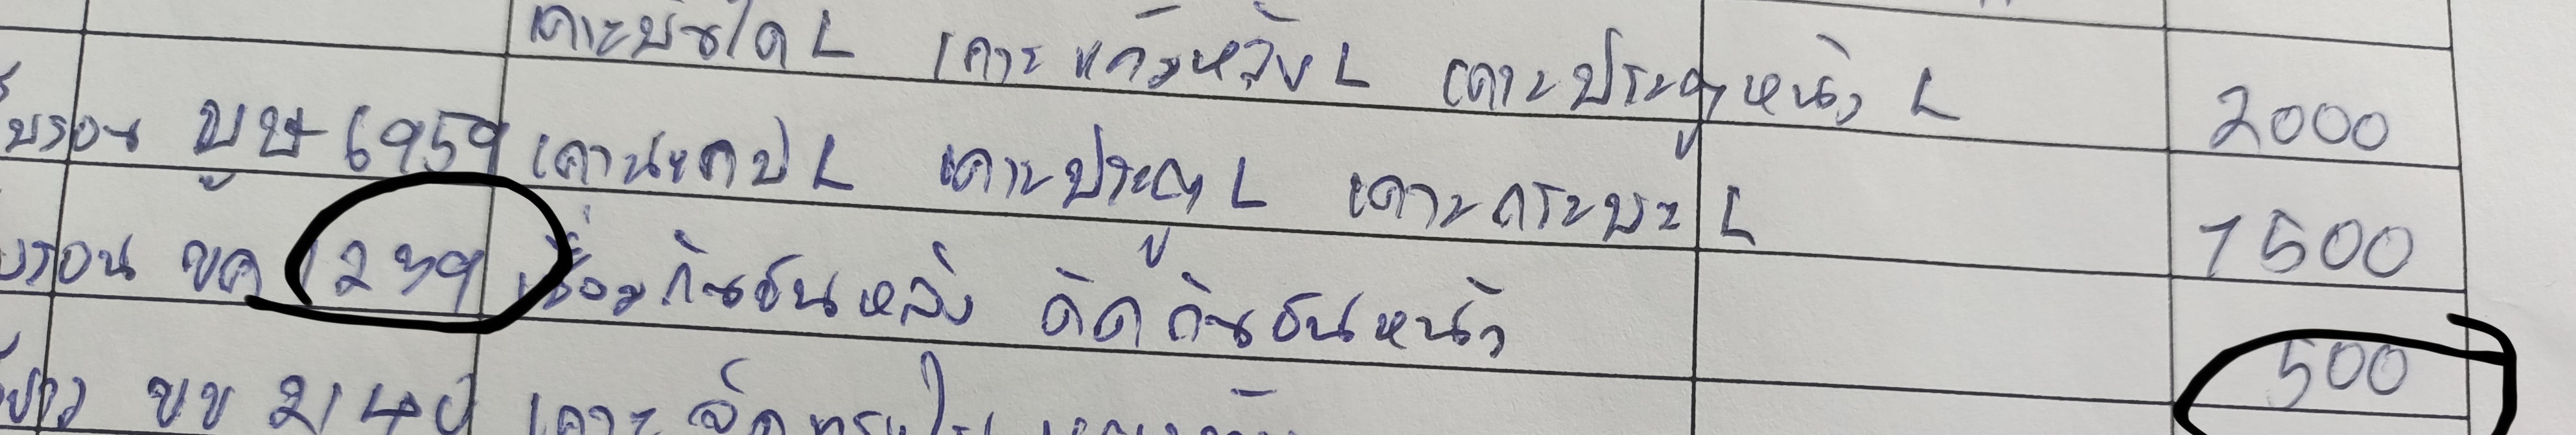 เคาะบันได L เคาะแก้มหลัง L เคาะประตูหน้า L 2000
บรอน บษ 6959 เคาะแคป L เคาะประตู L เคาะกระบะ L 1500
บรอน ขค 1239 เชื่อมกันชนหลัง ดัดกันชนหน้า 500
ขข 2140 เคาะ